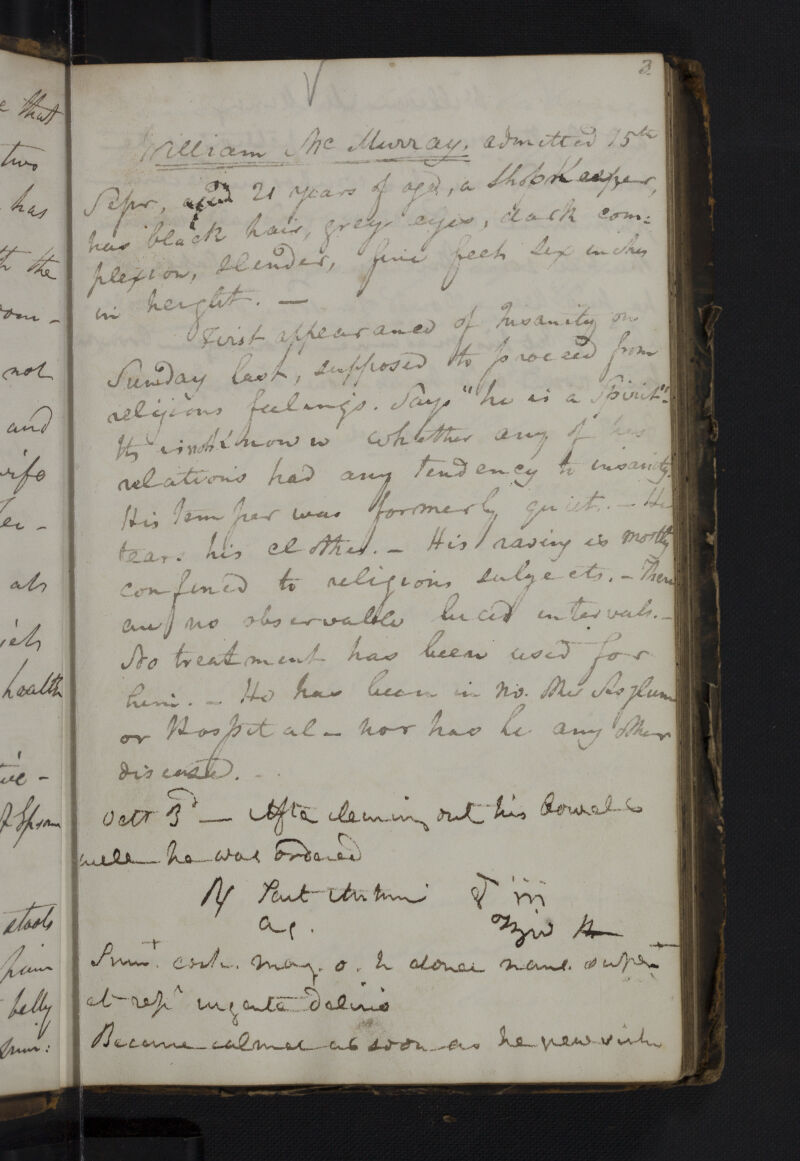 e that
two
has
th the
com-
not
and
wife
als
health
stools
pain
belly
3.
William Mc Murray. admitted 15th
Sepr, aged 21 years of age, a shopkeeper,
has black hair, grey eyes, dark com=
plexion, slender, five feet six inches
in height. —
First appearance of Insanity on
Sunday last, supposed to proceed from
religious feelings. Says "he is a Spirit".
It is not known whether any of his
relations had any tendency to insanity.
His temper was formerly quiet. — He
tears his clothes. — His raving is mostly
confined to religious subjects. — There
are no observable lucid intervals. —
No treatment has been used for
him. — He has been in no other Asylum
or Hospital — nor has he any other
disease. —
Octr 3d — After clearing out his bowels
well he was ordered
℞ Tart Antim gr iii
Aq. ℥iv
Sumt. coch. mag. o. h donec naus. supert
et rept urgente delirio
Became calmer as soon as he grew sick